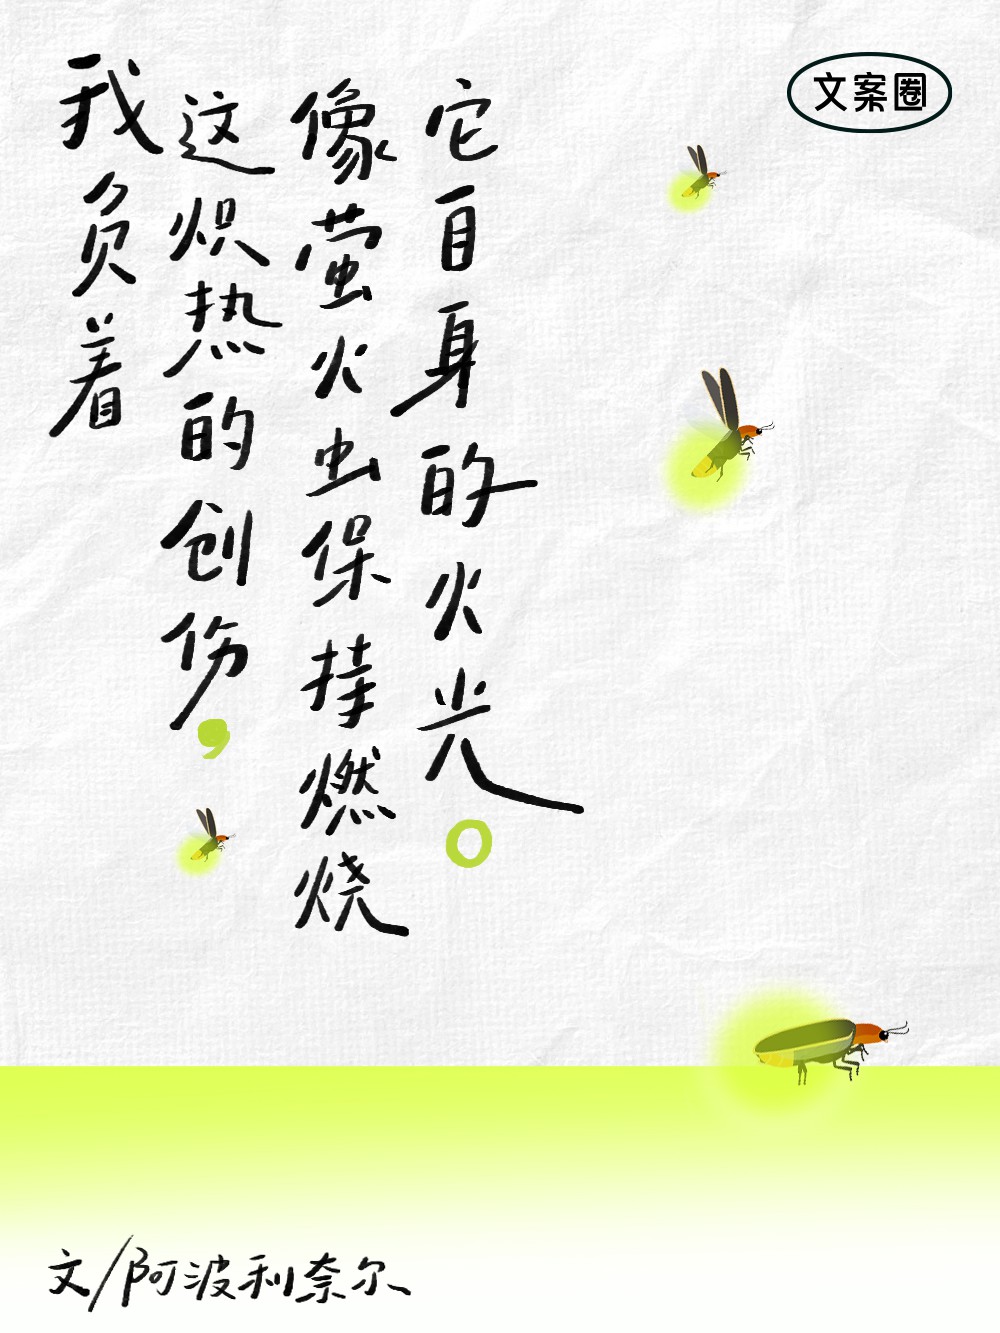 文案圈
我负着
这炽热的创伤，
像萤火虫保持燃烧
它自身的火光。
文/阿波利奈尔